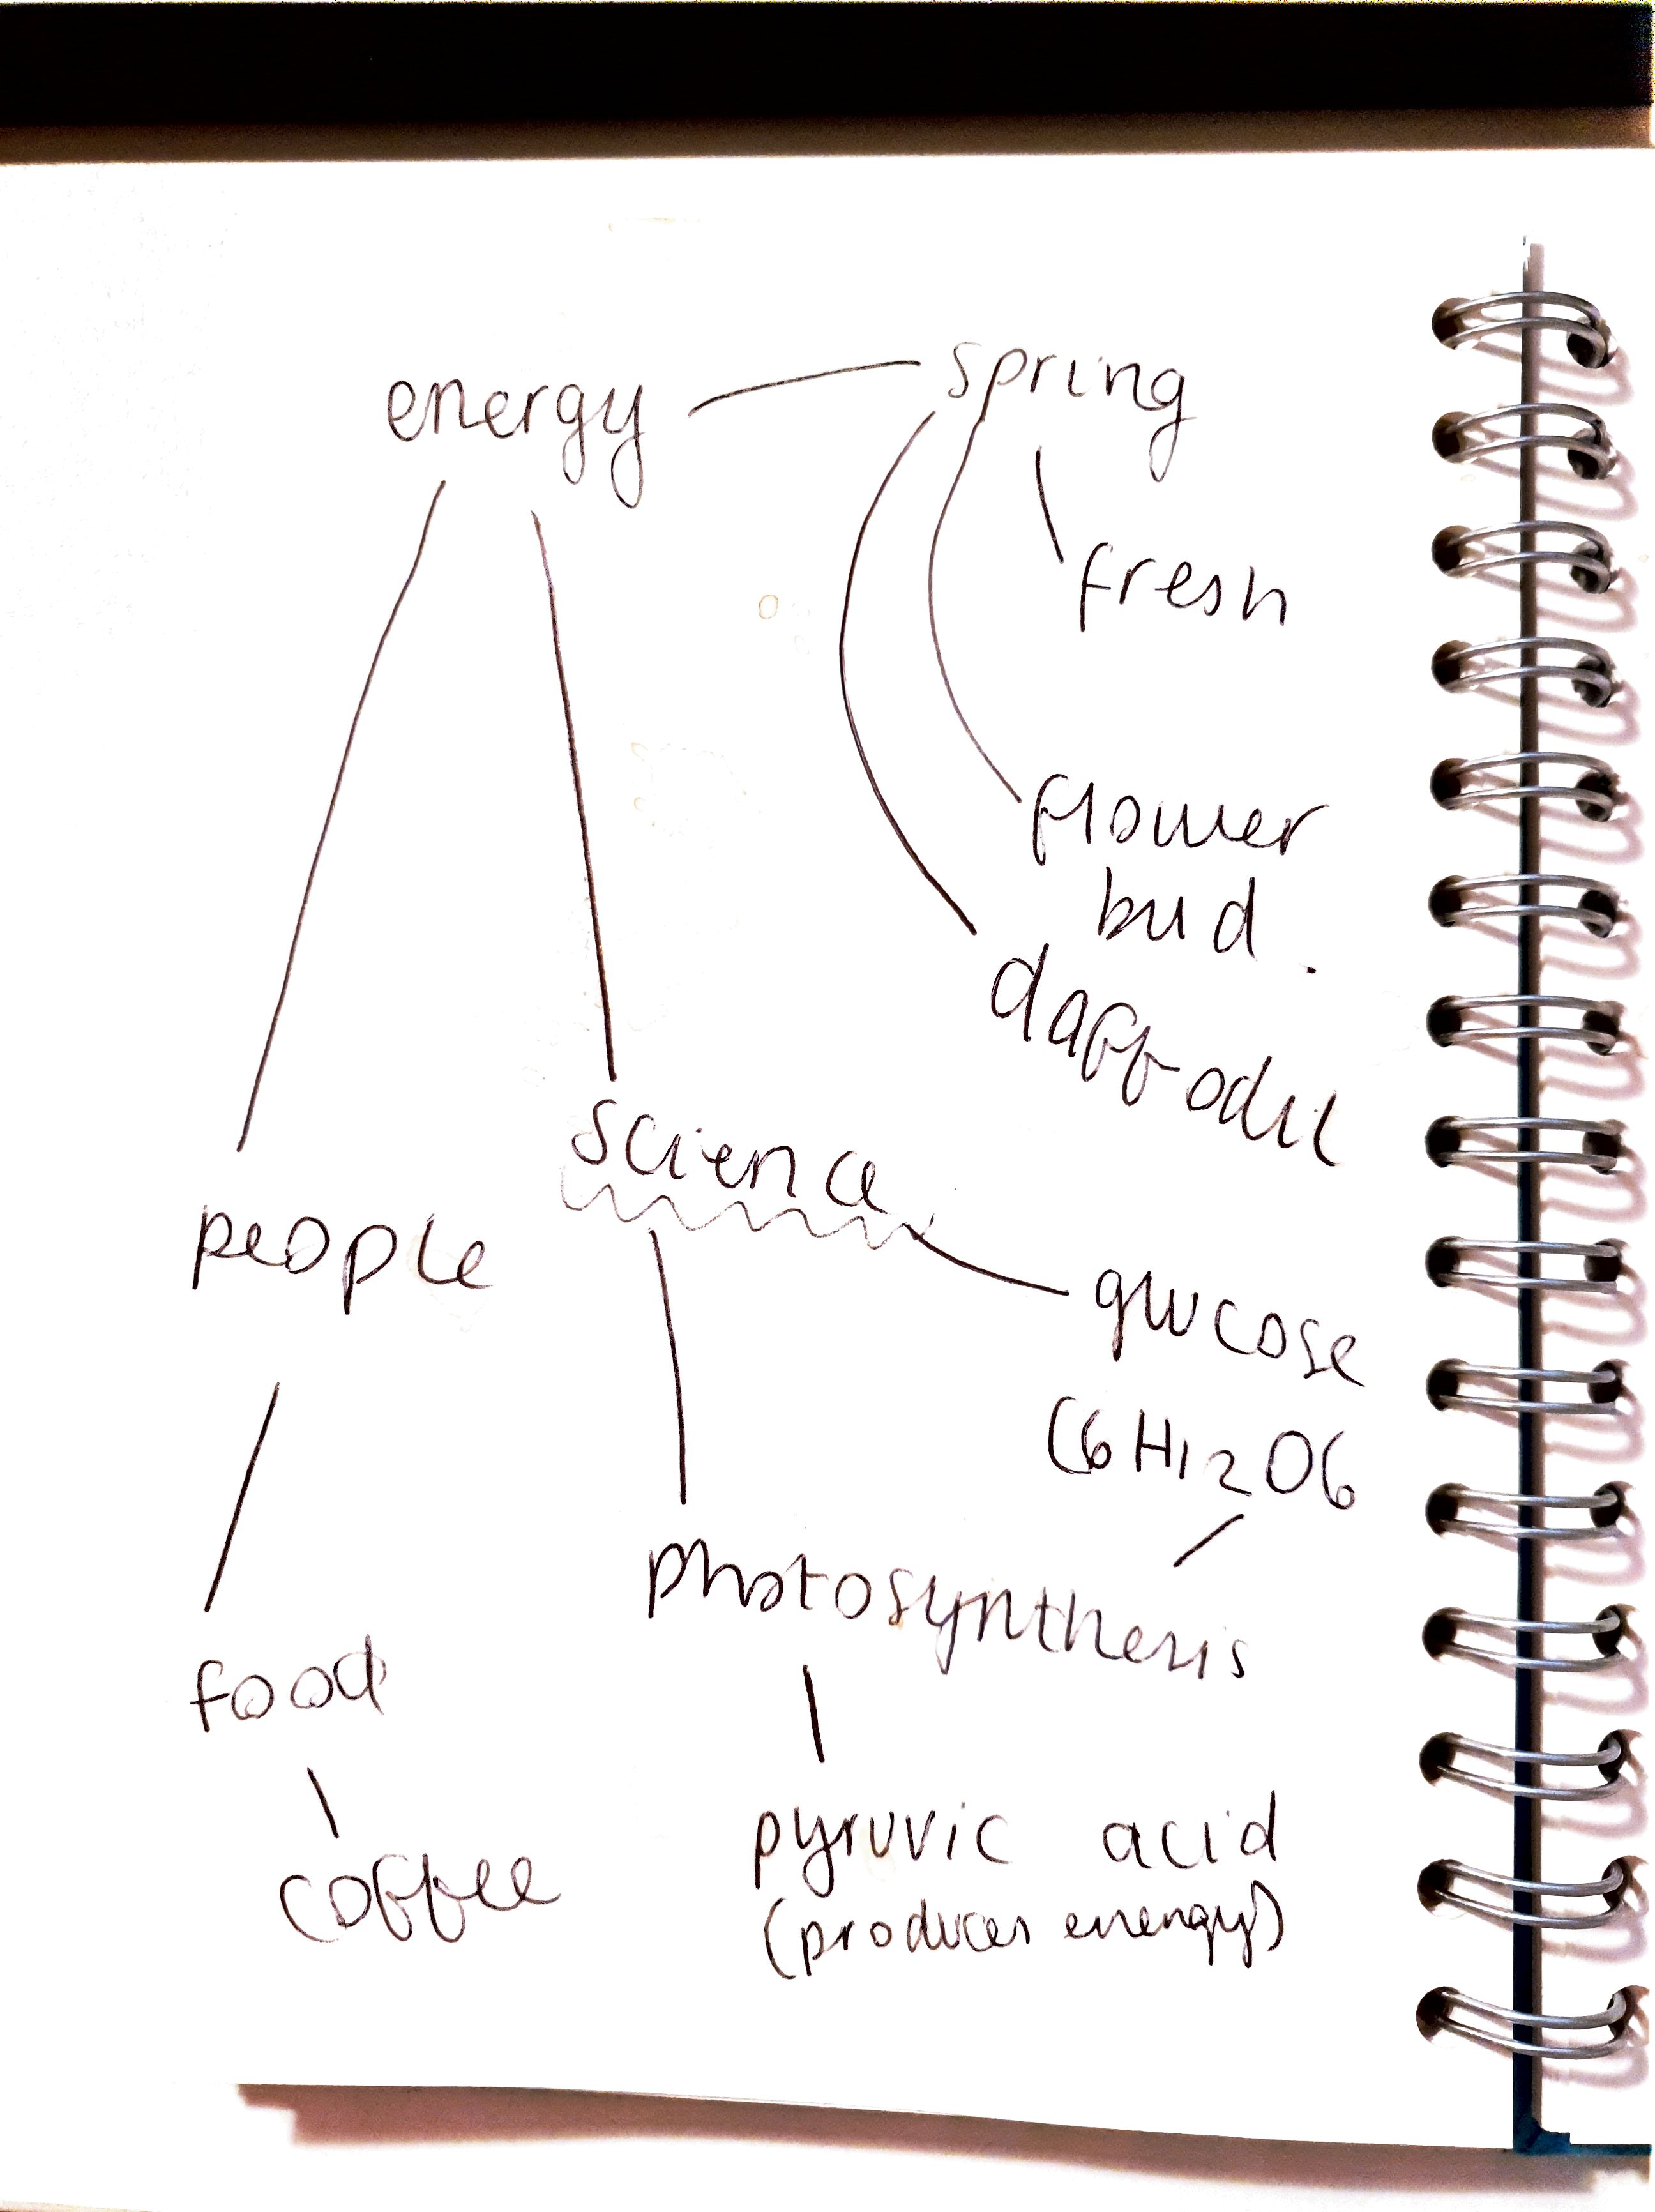 energy
spring
fresh
flower
bud.
daffodil
science
people
glucose
C6H12O6
photosynthesis
food
pyruvic acid
coffee
(produces energy)